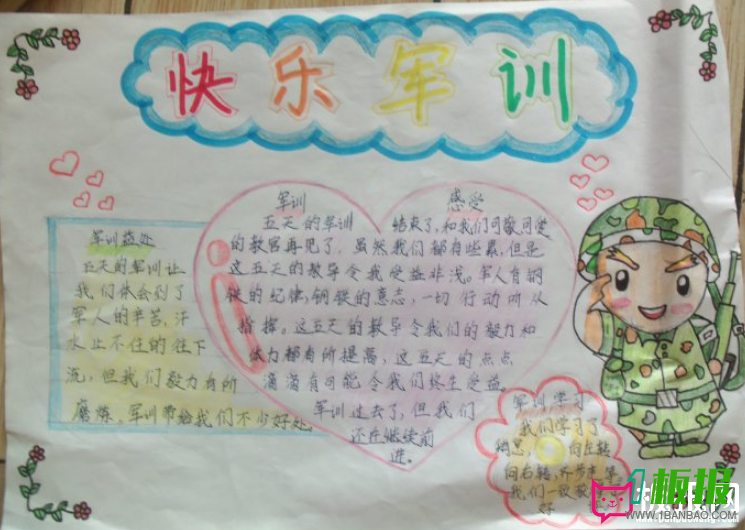 快乐军训
军训益处
五天的军训让
我们体会到了
军人的辛苦,汗
水止不住的往下
流,但我们毅力有所
磨炼,军训带给我们不少好处。
军训 感受
五天的军训 结束了,和我们可敬可爱
的教官再见了,虽然我们都有些累,但是
这五天的教导令我受益非浅。军人有钢
铁的纪律,钢铁的意志,一切行动听从
指挥。这五天的教导令我们的毅力和
体力都有所提高,这五天的点点
滴滴有可能令我们终生受益。
军训过去了,但我们
还在继续前
进。
军训学习
我们学习了
稍息, 向左转
向右转,齐步走等
我们一致敬
好
1板报网
WWW.1BANBAO.COM